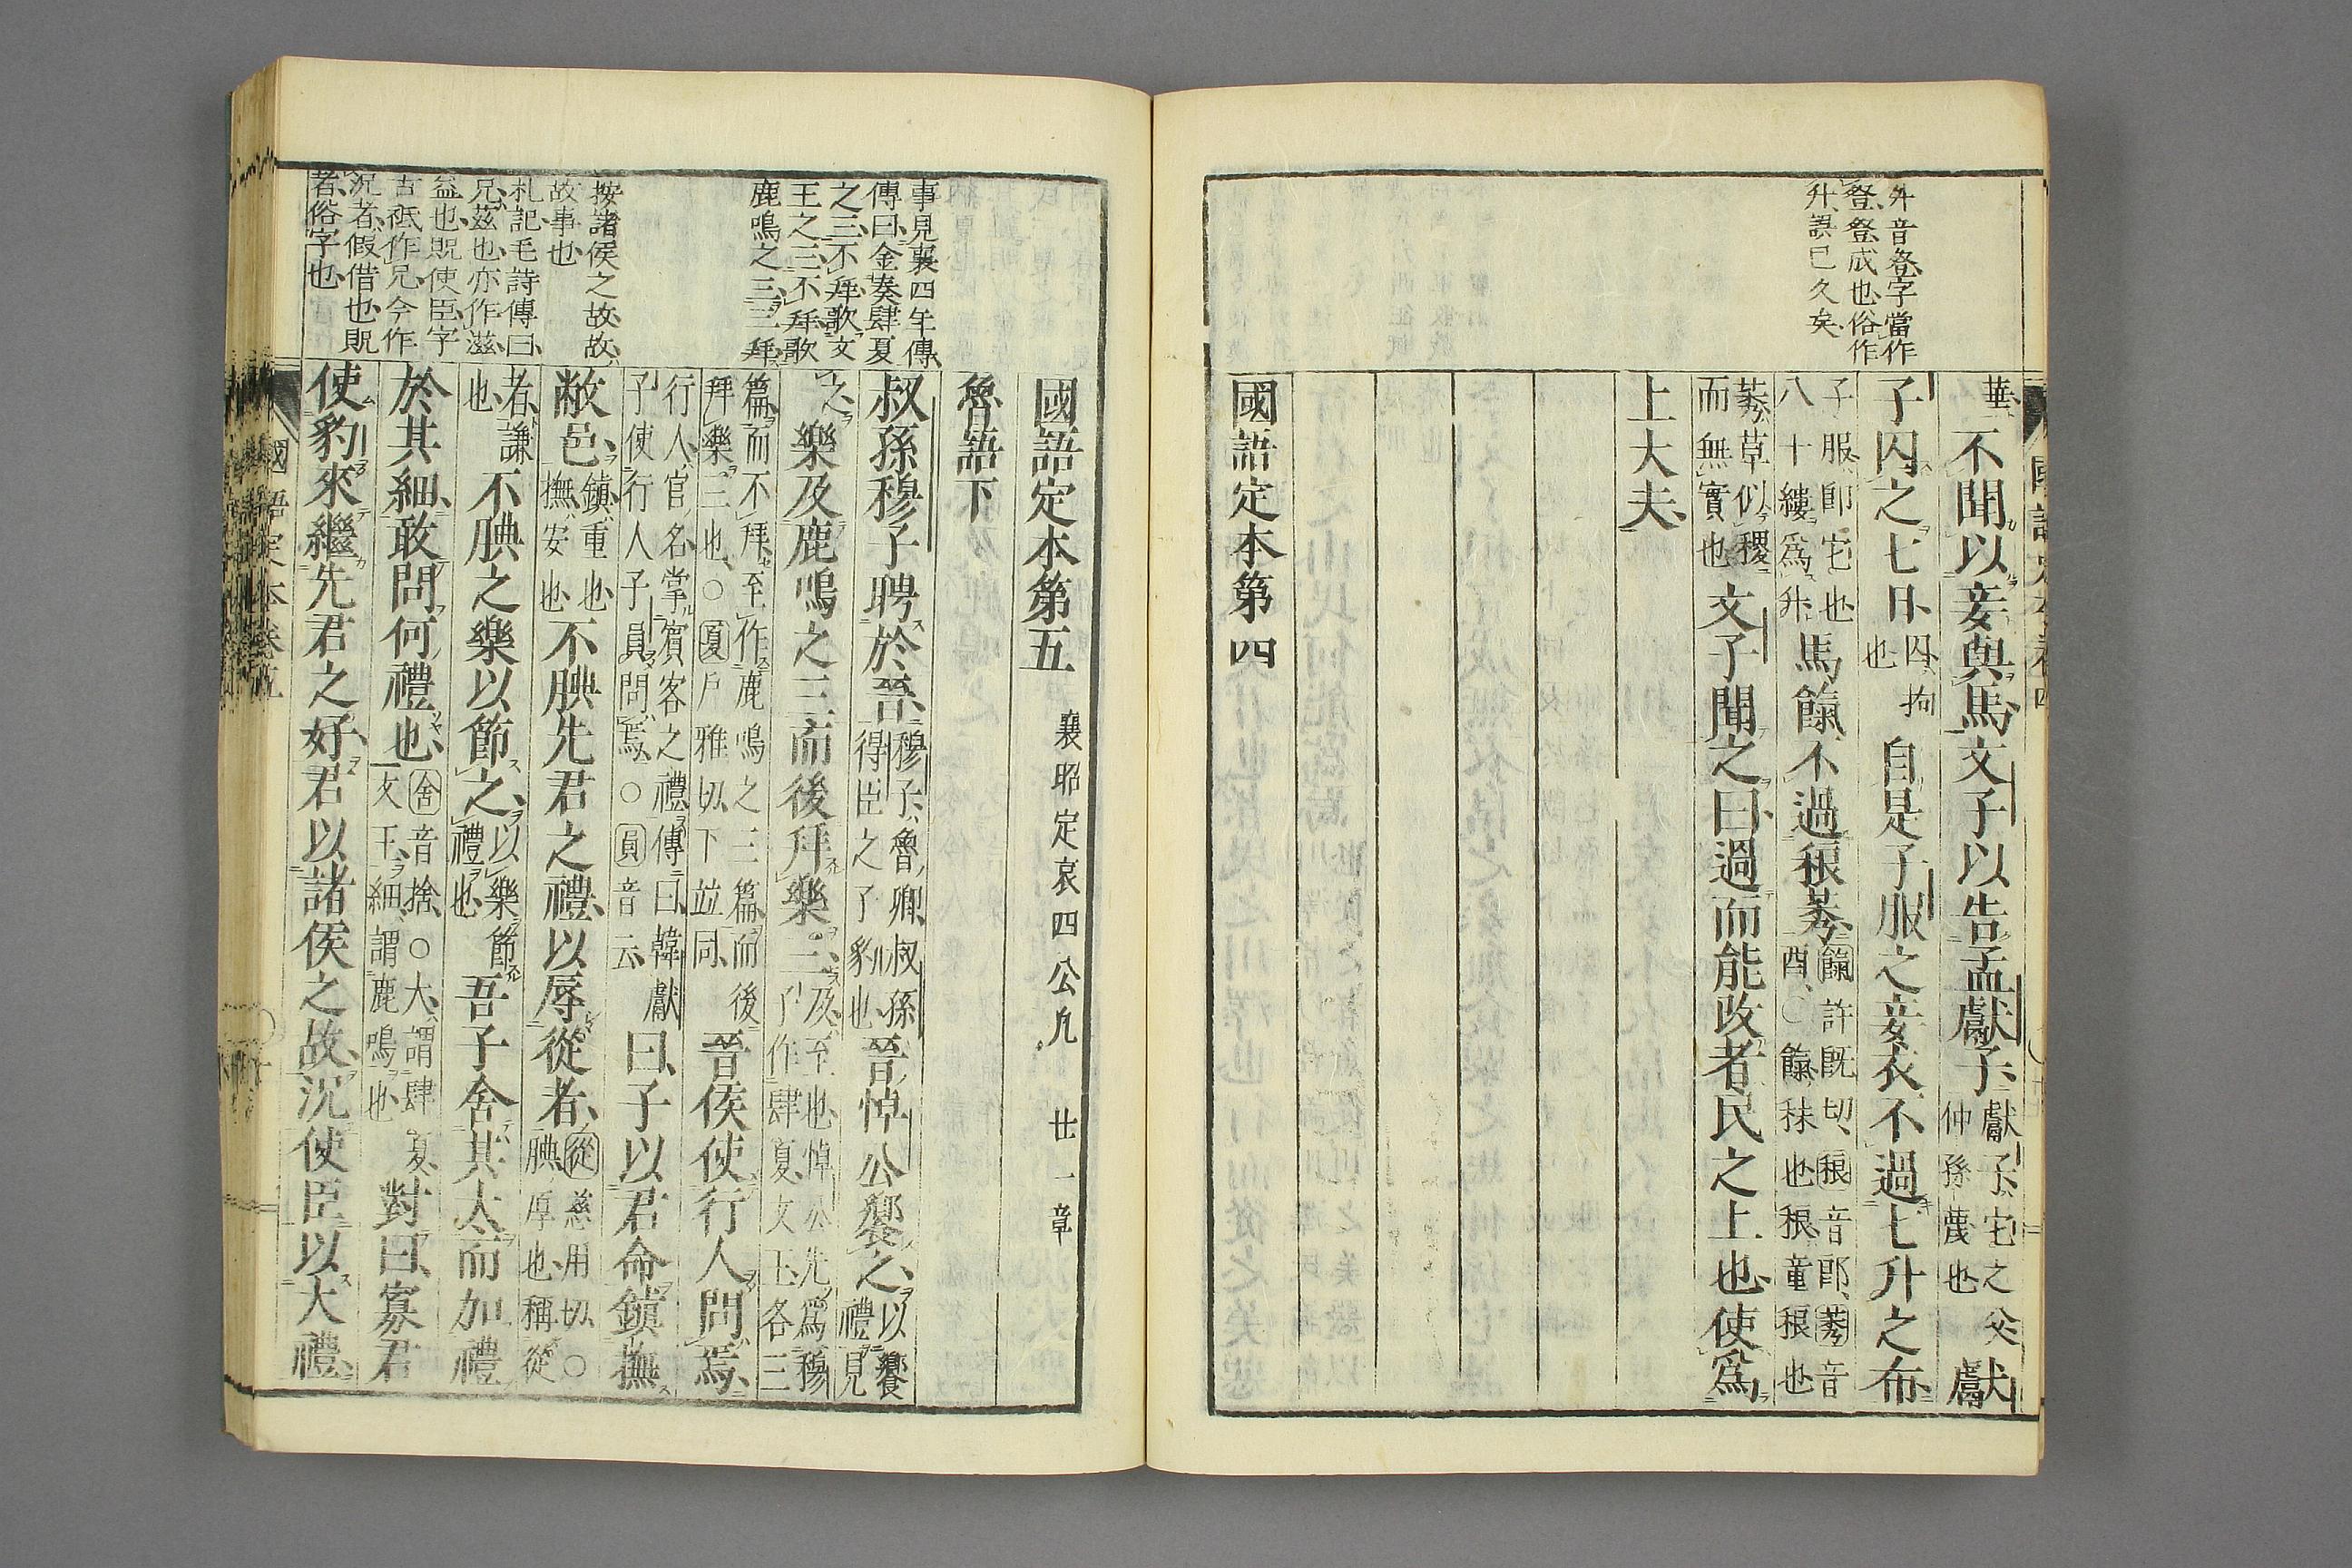 升音登、字當作
登、登成也、俗作
升、誤已久矣、
華、不聞以妾與馬、文子以告孟獻子、獻子、它之父仲孫蔑也獻
子囚之七日、囚、拘也自是子服之妾衣、不過七升之布、
子服、卽它也八十縷爲升、馬餼、不過稂莠、餼許旣切、稂音郎、莠音酉、○餼、秣也、稂、童稂也
莠、草似稷而無實也文子聞之曰、過而能改者、民之上也、使爲
上大夫、
國語定本第四
事見襄四年傳、
傳曰、金奏肆夏
之三、不拜、歌文
王之三、不拜、歌
鹿鳴之三、三拜、
按諸侯之故、故、
故事也、
札記、毛詩傳曰、
兄、茲也、亦作滋、
益也、貺使臣字
古祗作兄、今作
況者、假借也、貺
者、俗字也、
國語定本第五 襄昭定哀四公凡廿一章
魯語下
叔孫穆子聘於晉、穆子、魯卿、叔孫得臣之子豹也、晉悼公饗之、以饗禮見
之、樂及鹿鳴之三、而後拜樂三、及、至也、悼公先爲穆子作肆夏、文王、各三
篇、而不拜、至作鹿鳴之三篇、而後拜樂三也、○夏戶雅切、下竝同、晉侯使行人問焉、
行人、官名、掌賓客之禮、傳曰、韓獻子使行人子員問焉、○員音云、曰、子以君命鎮撫
敝邑、鎮、重也撫、安也不腆先君之禮、以辱從者、從慈用切、○腆、厚也、稱從
者、謙也、不腆之樂以節之、以樂節禮也、吾子舍其大、而加禮
於其細、敢問何禮也、舍音捨、○大、謂肆夏、文王、細、謂鹿鳴也、對曰、寡君
使豹來繼先君之好、君以諸侯之故、況使臣以大禮、
國語定本卷五